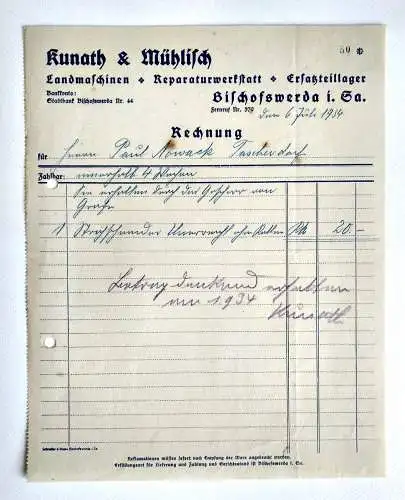 50 *
Kunath & Mühlisch
Landmaschinen * Reparaturwerkstatt * Ersatzteillager
Bankkonto:
Stadtbank Bischofswerda Nr. 44
Bischofswerda i. Sa.
Fernruf Nr. 579
den 6. Juli 1934
Rechnung
für Herrn Paul Nowack Taschendorf
Zahlbar: innerhalb 4 Wochen
Sie erhalten durch das Geschirr von
1 ohne 20.-
Betrag dankend erhalten
1934
Kunath
Reklamationen müssen sofort nach Empfang der Ware angebracht werden.
Erfüllungsort für Lieferung und Zahlung und Gerichtsstand ist Bischofswerda i. Sa.